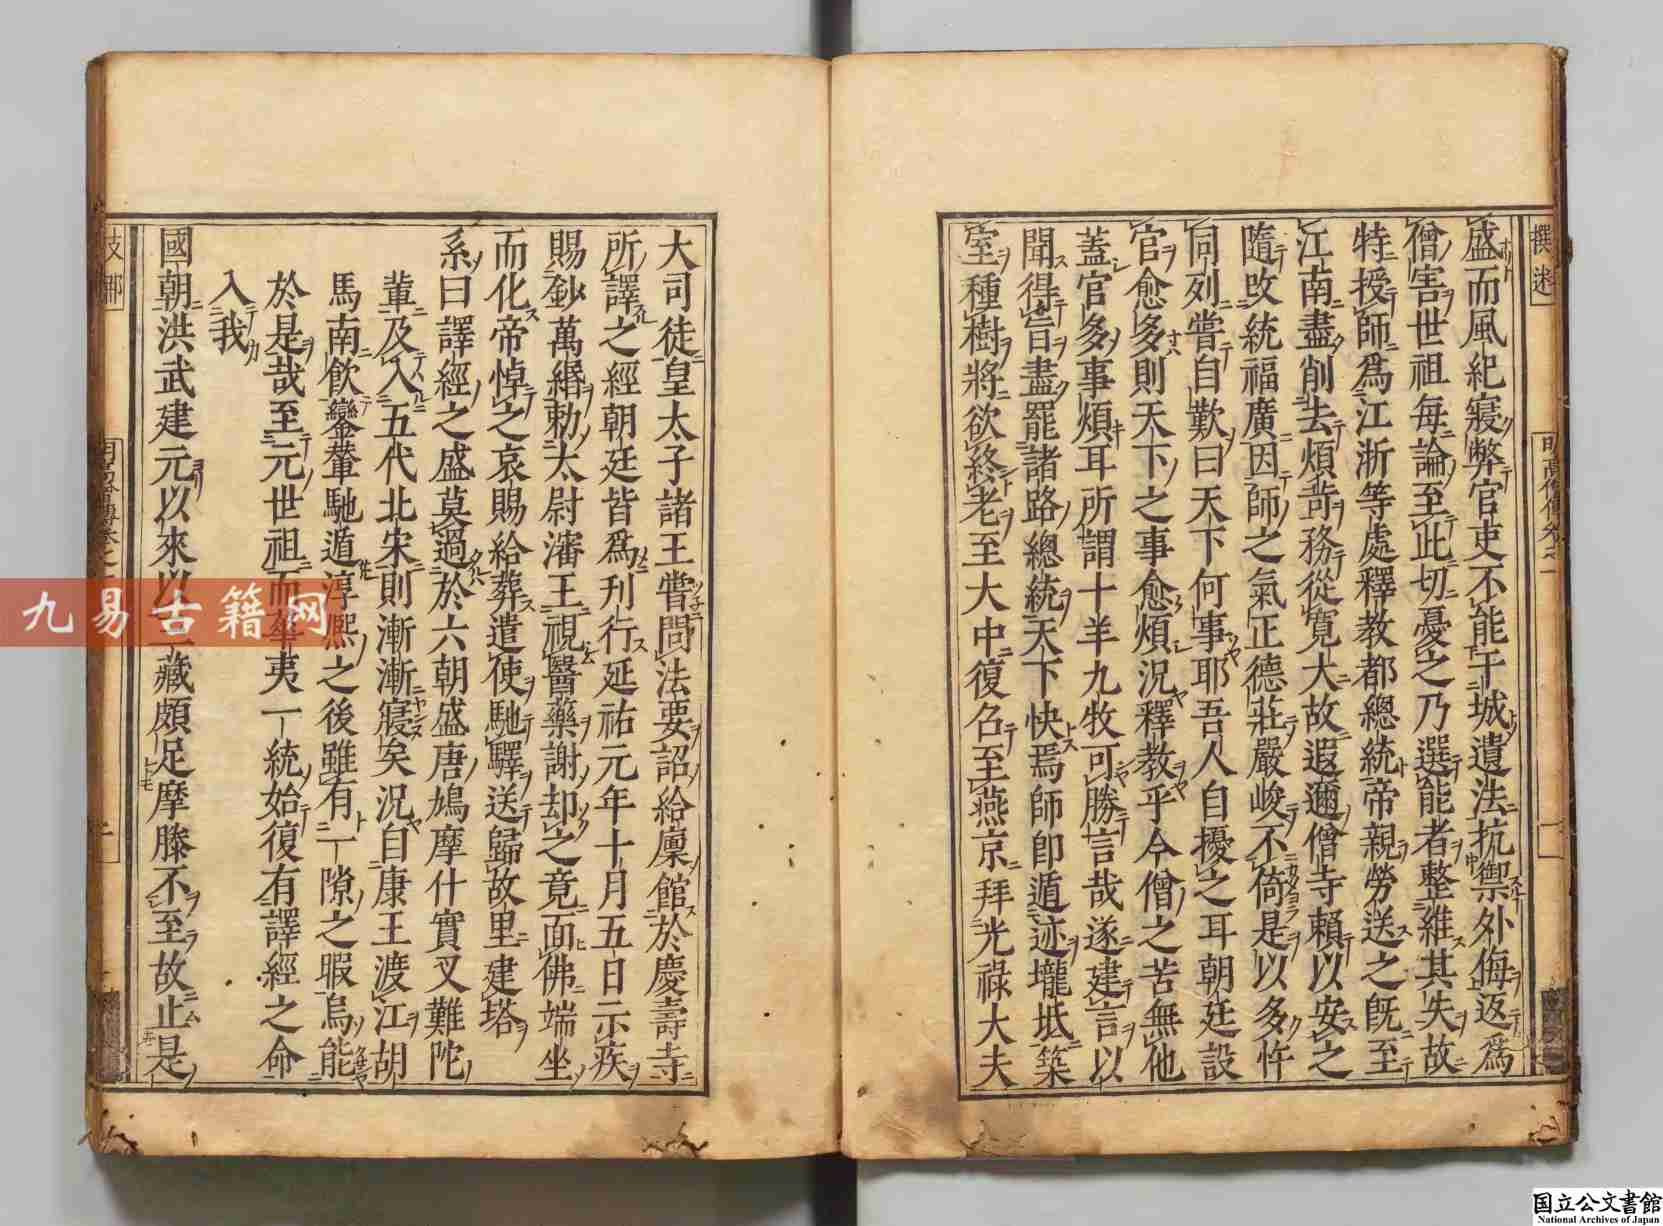 盛而風紀寢弊官吏不能干城遺法抗禦外侮返爲
僧害世祖每論至此切憂之乃選能者整維其失故
特授師爲江浙等處釋教都總統帝親勞送之既至
江南盡削去煩苛務從寬大故遐邇僧寺賴以安之
隨改統福廣因師之氣正德莊嚴峻不倚是以多忤
同列嘗自歎曰天下何事耶吾人自擾之耳朝廷設
官愈多則天下之事愈煩況釋教乎今僧之苦無他
蓋官多事煩耳所謂十羊九牧可勝言哉遂建言以
聞得旨盡罷諸路總統天下快焉師即遁迹壠坻築
室種樹將欲終老至大中復召至燕京拜光祿大夫
大司徒皇太子諸王嘗問法要詔給廩館於慶壽寺
所譯之經朝廷皆爲刊行延祐元年十月五日示疾
賜鈔萬緡勅太尉瀋王視醫藥謝却之竟面佛端坐
而化帝悼之哀賜給葬遣使馳驛送歸故里建塔
系曰譯經之盛莫過於六朝盛唐鳩摩什實叉難陀
輩及入五代北宋則漸漸寢矣況自康王渡江胡
馬南飲鑾輦馳遁淳熙之後雖有一隙之暇烏能
於是哉至元世祖而華夷一統始復有譯經之命
入我
國朝洪武建元以來以三藏頗足摩騰不至故止是
九易古籍网
国立公文書館
National Archives of Japan